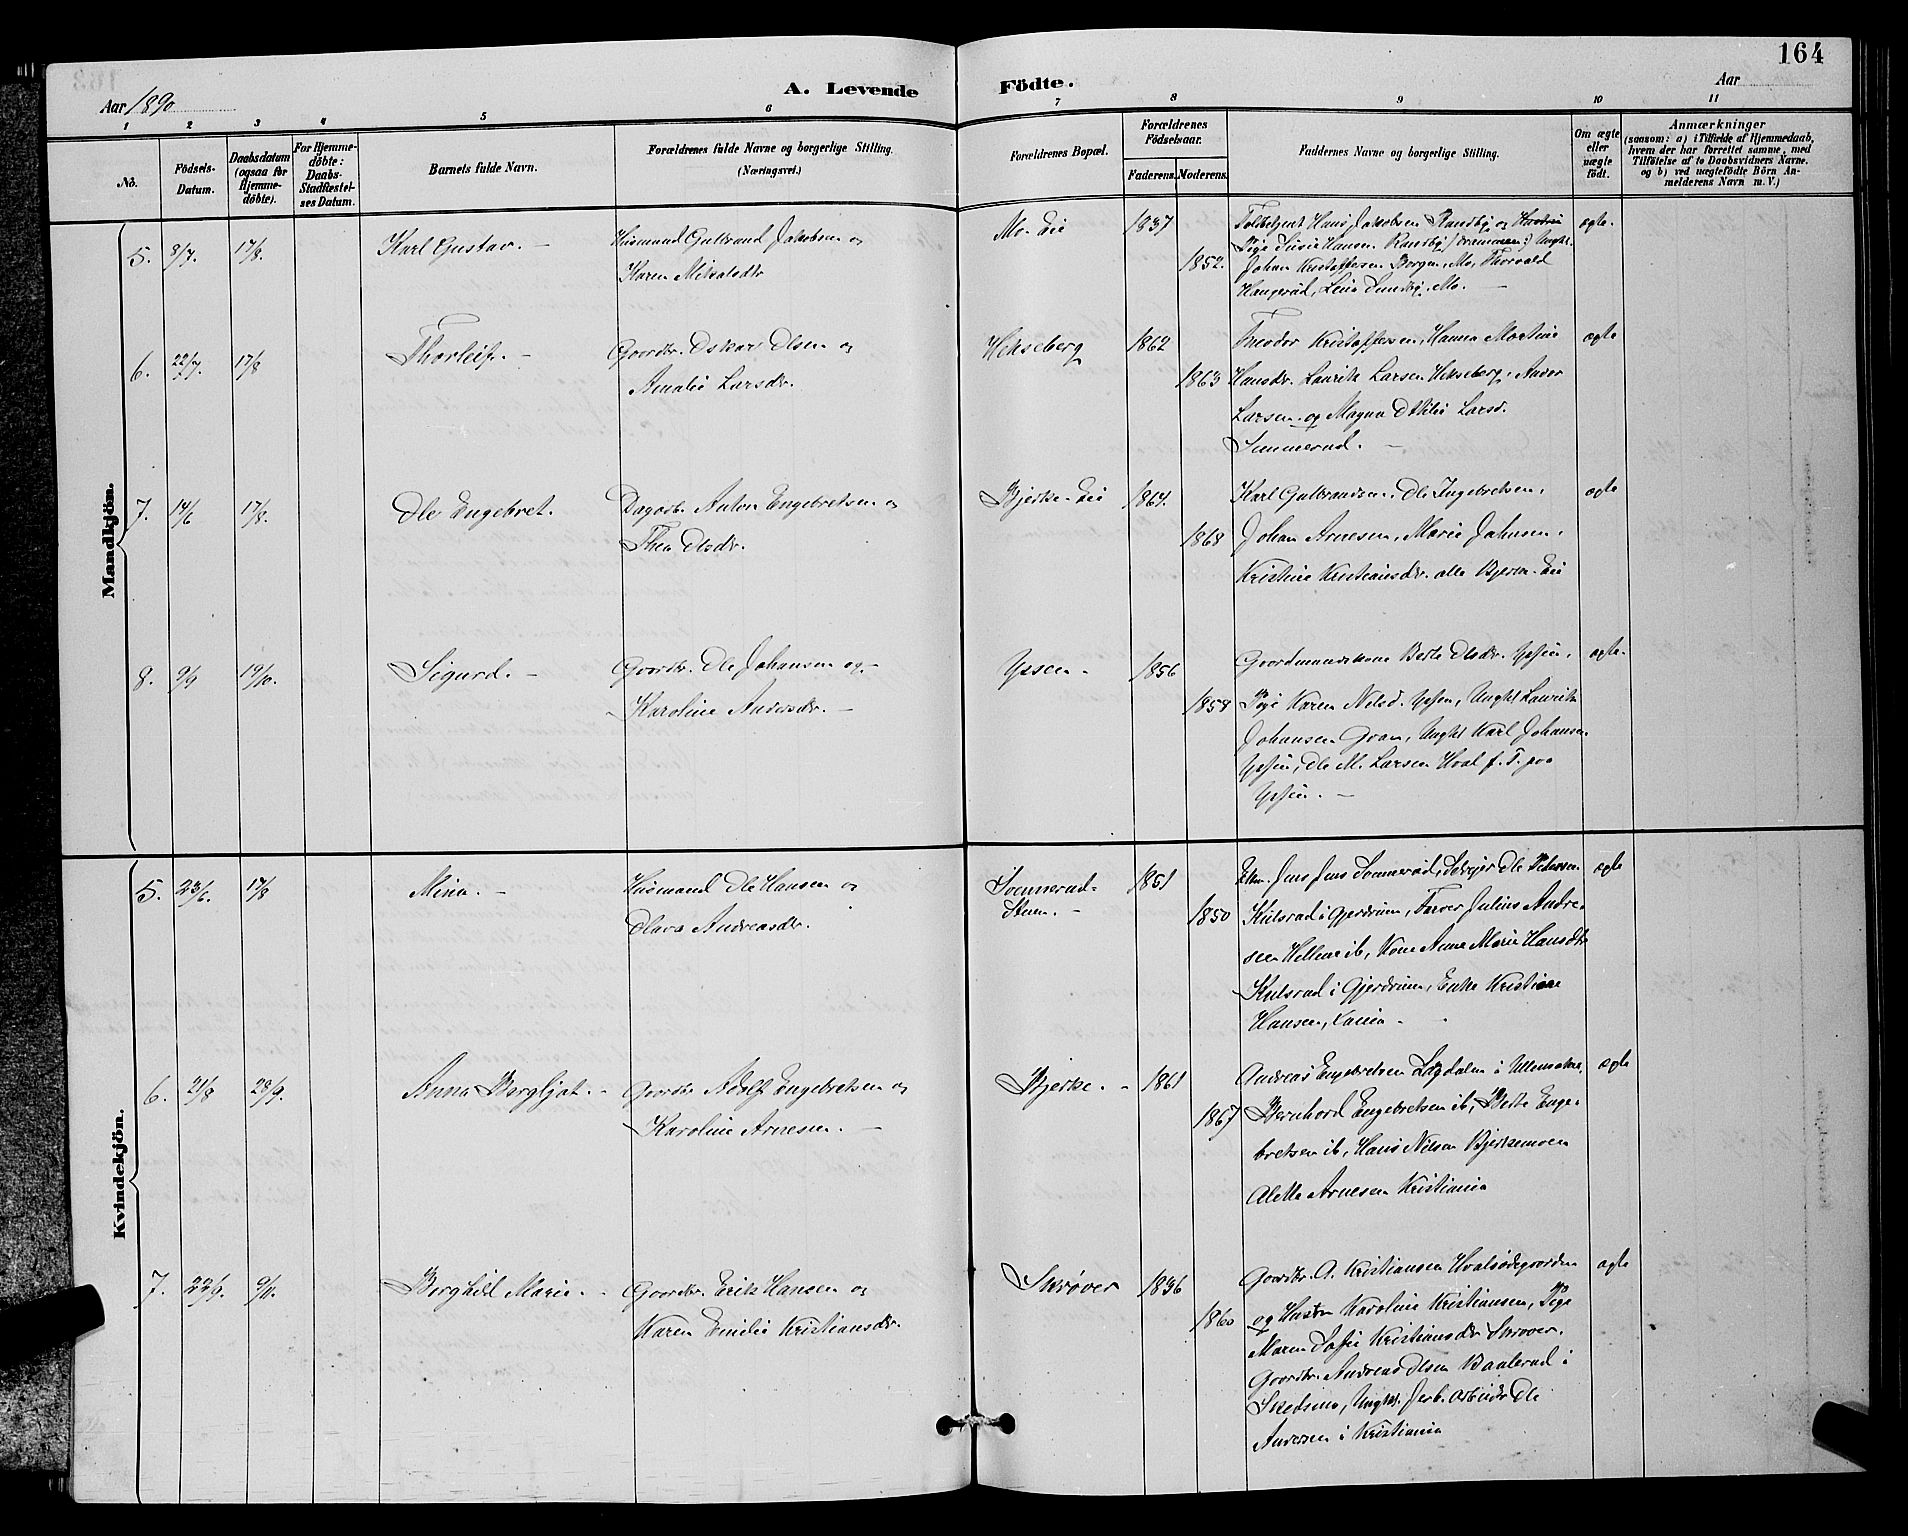 164
Aar 1890
A. Levende
Födte.
Aar
1 2 3 4 5 6 7 8 9 10 11
No.
Födsels-
Datum.
Daabsdatum
(ogsaa for
Hjemme-
döbte).
For Hjemme-
döbte:
Daabs-
Stadfæstel-
ses Datum.
Barnets fulde Navn.
Forældrenes fulde Navne og borgerlige Stilling.
(Næringsvei.)
Forældrenes Bopæl.
Forældrenes
Födselsaar.
Faderens. Moderens.
Faddernes Navne og borgerlige Stilling.
Om ægte
eller
uægte
födt.
Anmærkninger
(saasom: a) i Tilfælde af Hjemmedaab,
hvem der har forrettet samme, med
Tilföielse af to Daabsvidners Navne.
og b) ved uægtefödte Börn An-
melderens Navn m. V.)
Mandkjön.
5. 8/7. 17/8. Karl Gustav. - Husmand Gulbrand Jakobsen og
Karen Mikalsdtr
Mo-Eie 1837 1852.
Toldbetjent Hans Jakobsen Randby og
Pige Susie Hansen Randby, Drammen, Ungkl.
Johan Kristoffersen Borgen, Mo, Thorvald
Haugerud, Lina Sundby, Mo. -
ægte.
6. 22/7. 17/8 Thorleif. - Gaardbr. Oskar Olsen og
Amalie Larsdr.
Hekseberg 1862 1863
Theodor Kristoffersen, Hanna Martine
Hansdr. Lauritz Larsen Hekseberg, Ander
Larsen og Magna Othilie Larsd.
Simmerud. -
ægte
7. 14/6 17/8. Ole Engebret. Dagarb. Anton Engebretsen og
Thea Olsdr.
Bjerke-Eie 1864. 1868
Karl Gulbrandsen, Ole Ingebretsen,
Johan Arnesen, Marie Jahnsen,
Kristine Kristiansdr. alle Bjerke-Eie
ægte
8. 9/9 19/10. Sigurd. - Gaardbr. Ole Johansen og -
Karoline Andersdr. -
Yssen - 1856 1858
Gaardmandskone Berte Olsdr. Yssen,
Pige Karen Nilsd. Yssen, Ungkl Lauritz
Johansen Gran, Ungkl Karl Johansen
Yssen, Ole M. Larsen Hval f. T. paa
Yssen. -
ægte.
Kvindekjön.
5. 23/6. 17/8 Mina. - Husmand Ole Hansen og
Olava Andreasdr.
Sommerud-
Stuen. - 1851 1850
Jens Jens Sommerud, Ole Petersen
Kulsrud i Gjerdrum, Farver Julius Andre-
sen Hellene ib, Kone Anne Marie Hansdtr
Kulsrud i Gjerdrum, Enke Kristiane
Hansen, Xania -
ægte
6. 21/8 28/9. Anna Bergljot. - Gaardbr Adolf Engebretsen og
Karoline Arnesen. -
Bjerke. - 1861 1867
Andreas Engebretsen Lägdalen i Ullensaker,
Bernhard Engebretsen ib, Berte Enge-
bretsen ib, Hans Nilsen Bjerkemoen
Alette Arnesen Kristiania
ægte
7. 22/9. 9/11. Borghild Marie. - Gaardbr. Erik Hansen og
Karen Emilie Kristiansdr.
Skrøver 1836 1860
Gaardbr. A. Kristiansen Hvalsødegaarden
og Hustru Karoline Kristiansen, Pige
Maren Sofie Kristiansdr Skrøver.
Gaardbr. Andreas Olsen Baalerud i
Skedsmo, Ungkl. Jerb. Arbeider Ole
Andersen i Kristiania
ægte